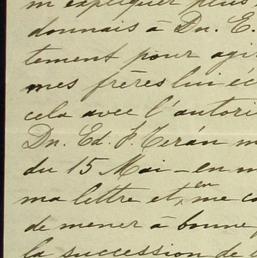 m'expliquer plus
donnais à Dn. E.
tement pour agi
mes frères lui éc
cela avec l'autori
Dn. Ed. F. Terán m
du 15 Mai - en m
ma lettre et, en me co
de mener à bonne f
la succession de